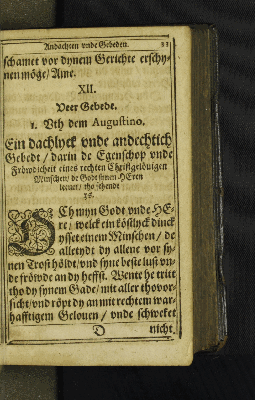 Andachten vnde Gebeden.
schamet vor dynem Gerichte erschy-
nen möge / Ame.
XII.
Veer Gebede.
1. Vth dem Augustino.
Ein dachlyck vnde andechtich
Gebede / darin de Egenschop vnde
Fröwdicheit eines rechten Christgelövigen
Minschen / de Godt synen HEren
leevet / tho sehende
ys.
OCh myn Godt vnde HE-
re / welck ein köstlyck dinck
ysset einem Minschen / de
alletydt dy allene vor sy-
nen Trost höldt / vnd syne beste lust vn-
de fröwde an dy hefft. Wente he tritt
tho dy synem Gade / mit aller thovor-
sicht / vnd röpt dy an mit rechtem war-
hafftigem Gelouen / vnde schweket
D nicht